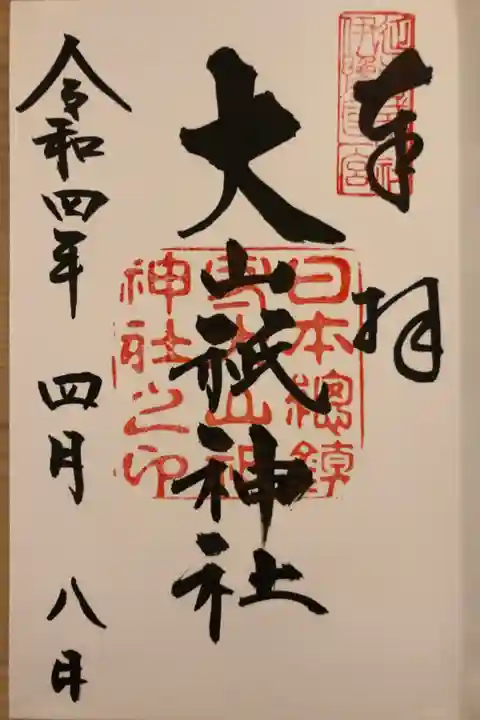 奉拝
大山祇神社
令和四年 四月 八日
日本總鎮
守大山祇
神社之印